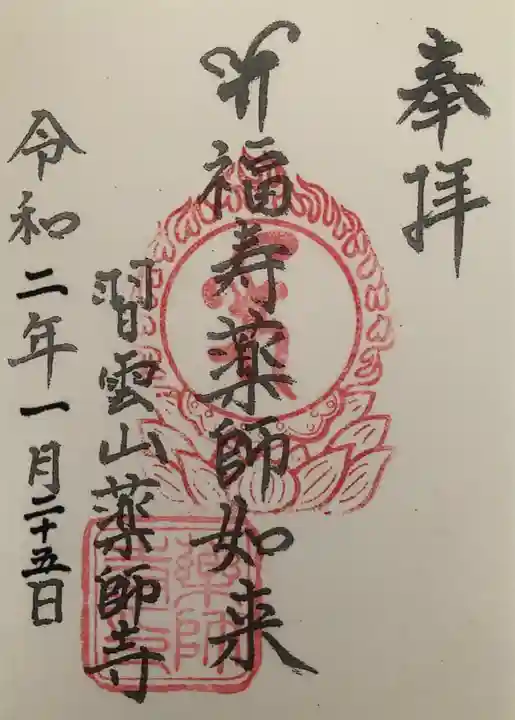 奉拝
福寿薬師如来
習雲山薬師寺
令和二年一月二十五日
薬師寺印